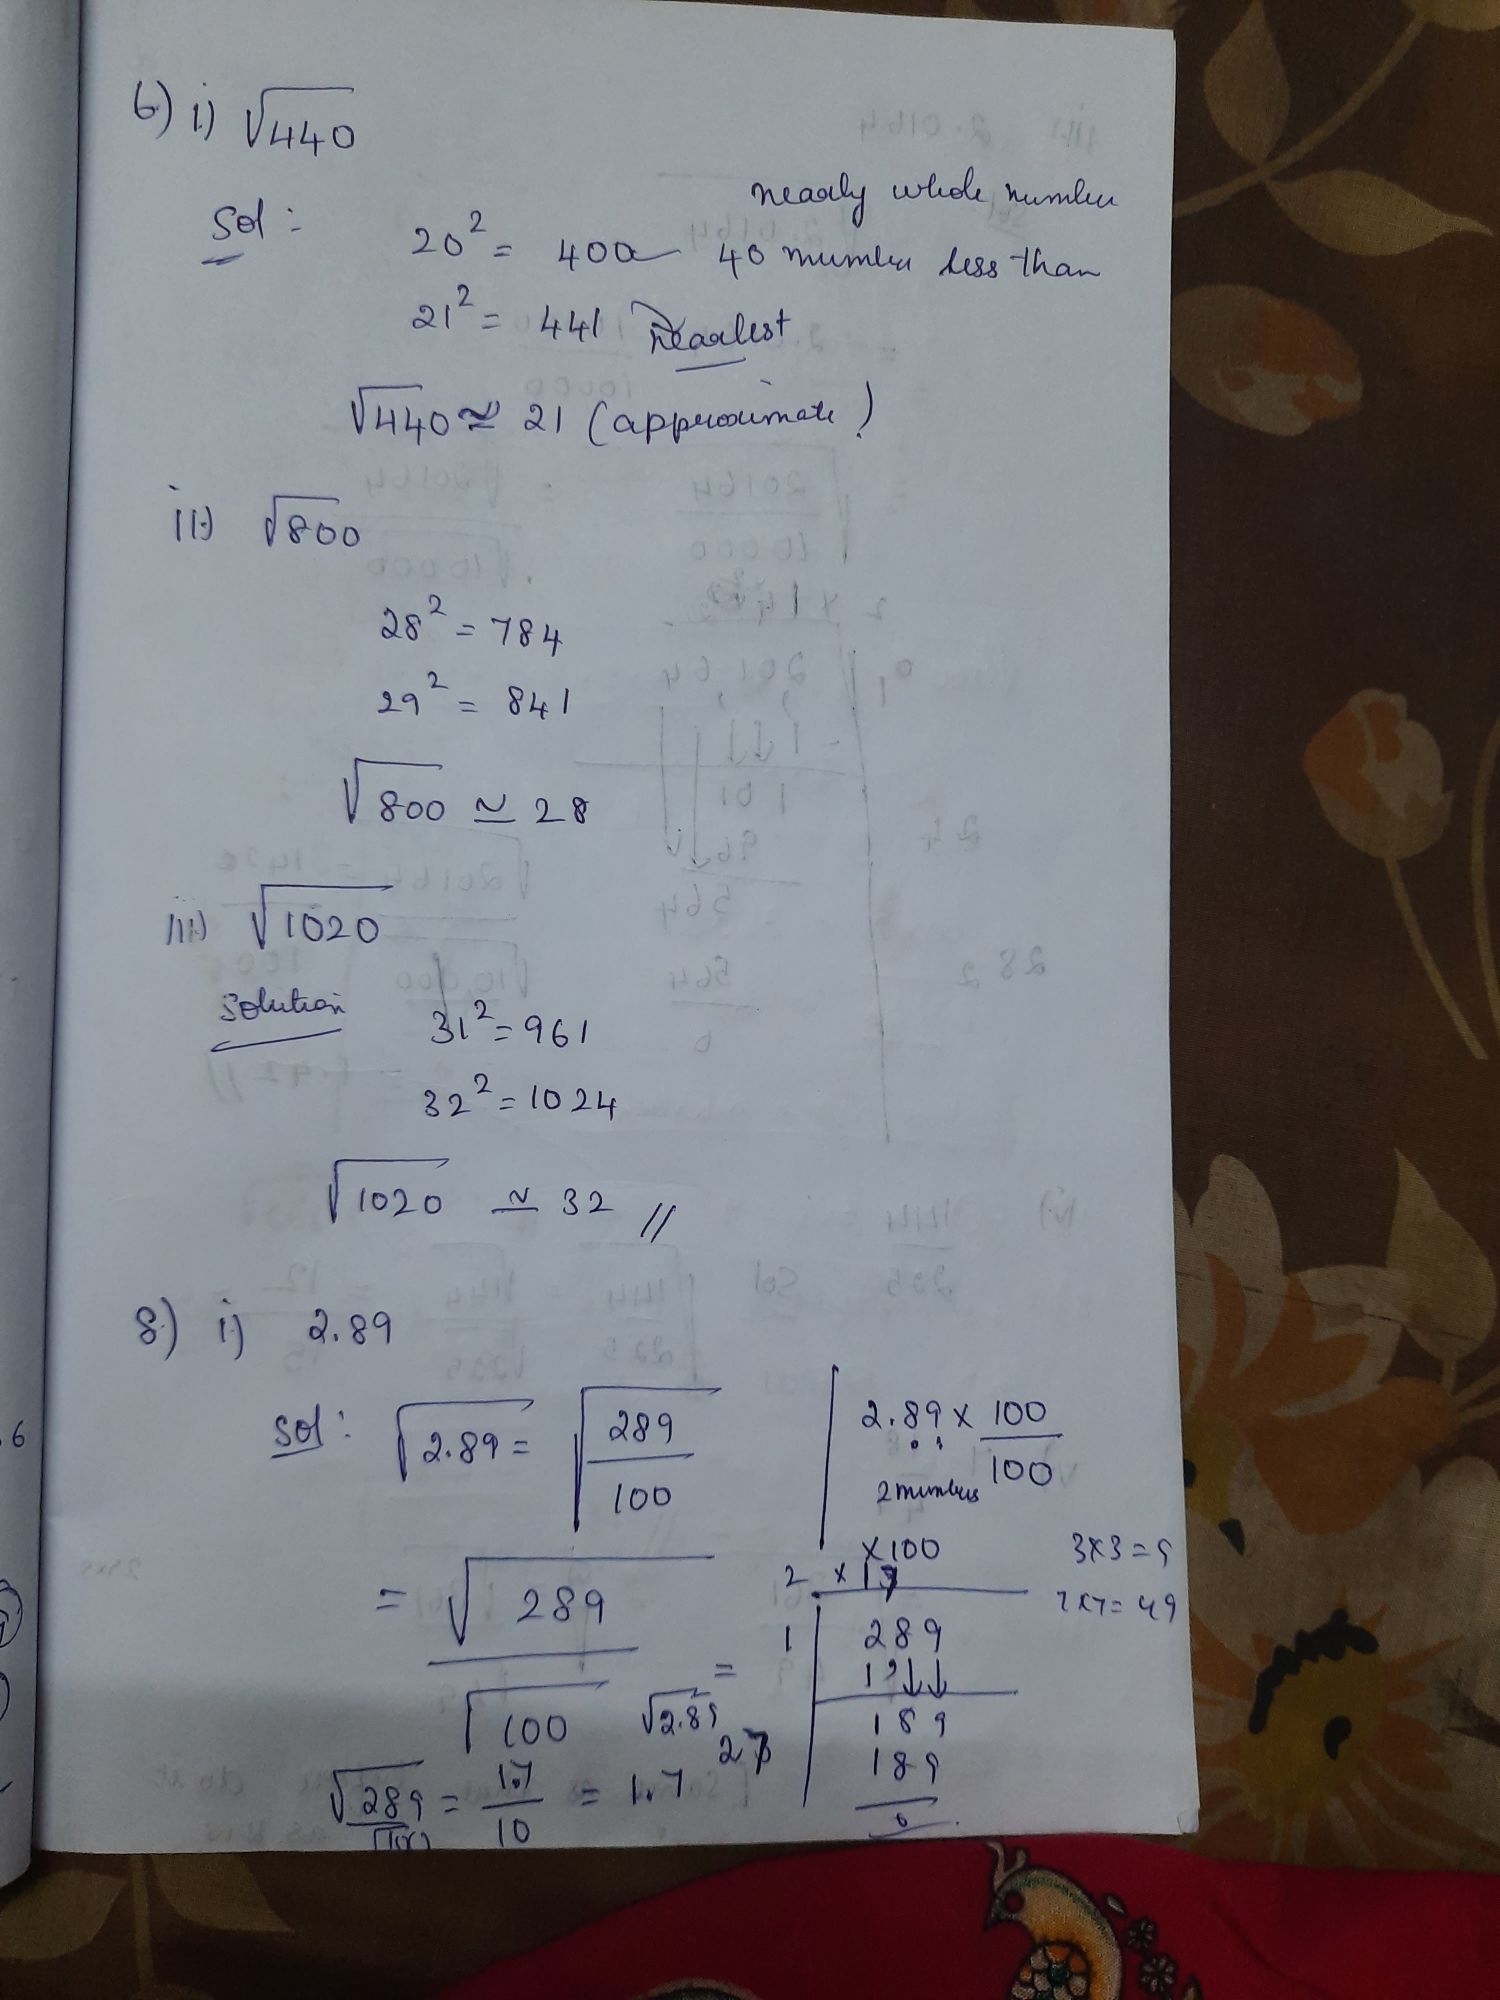 6) i) √440
nearly whole number
Sol :
20² = 400 40 number less than
21² = 441 Nearlest
√440 ≈ 21 (approximate)
ii) √800
28² = 784
29² = 841
√800 ≃ 28
iii) √1020
Solution
31² = 961
32² = 1024
√1020 ≃ 32 //
8) i) 2.89
Sol : √2.89 = √289/100
2.89 × 100/100
2 numbers
×100
= √289/√100
3×3=9
7×7=49
2 × 17
1 289
1
189
27 189
0
= √2.89
√289/√100 = 1.7/10 = 1.7
6